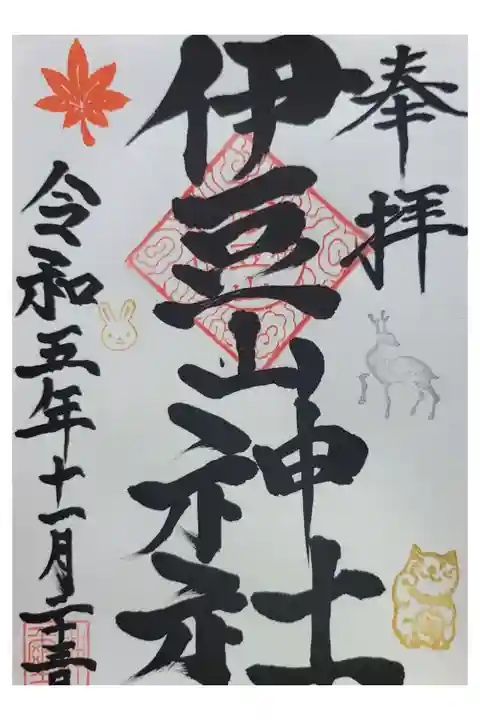 奉拝
伊豆山神社
令和五年十一月二十三日